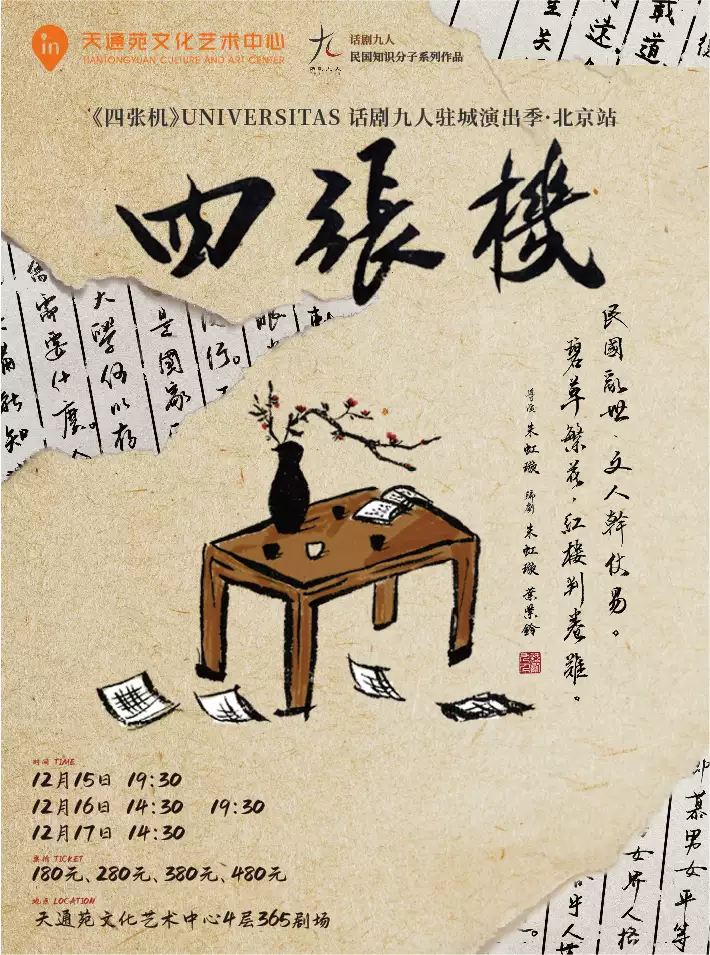 in
天通苑文化艺术中心
TIANTONGYUAN CULTURE AND ART CENTER
九
话剧九人
话剧九人
民国知识分子系列作品
載道
《四张机》UNIVERSITAS 话剧九人驻城演出季·北京站
四張機
民國亂世、文人幹仗易。
碧草繁花，紅樓判卷難。
导演 朱虹璇 编剧 朱虹璇 葉紫鈴
是國家
大學何以存
需要什麼。人
滿能知
时间 TIME
12月15日 19:30
12月16日 14:30 19:30
12月17日 14:30
票价 TICKET
180元、280元、380元、480元
地点 LOCATION
天通苑文化艺术中心4层365剧场
慕男女平等
女界人格